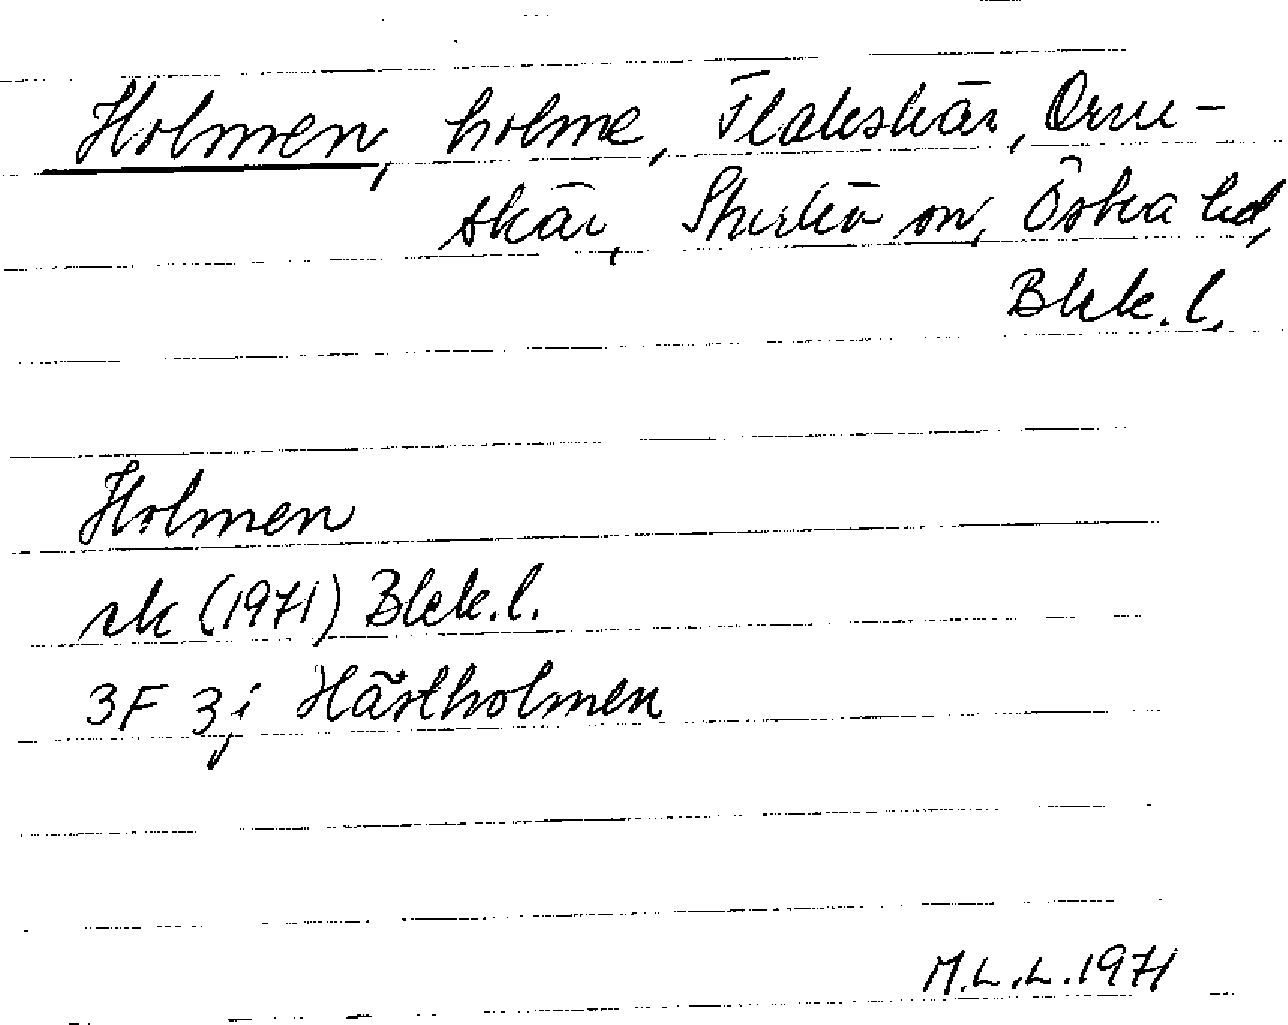 Holmen, holme, Flakskär, Orru-
skär, Sturkö sn, Östra hd,
Blek. l.
Holmen
sk (1971) Blek. l.
3F 3j Hästholmen
M.L.L. 1971